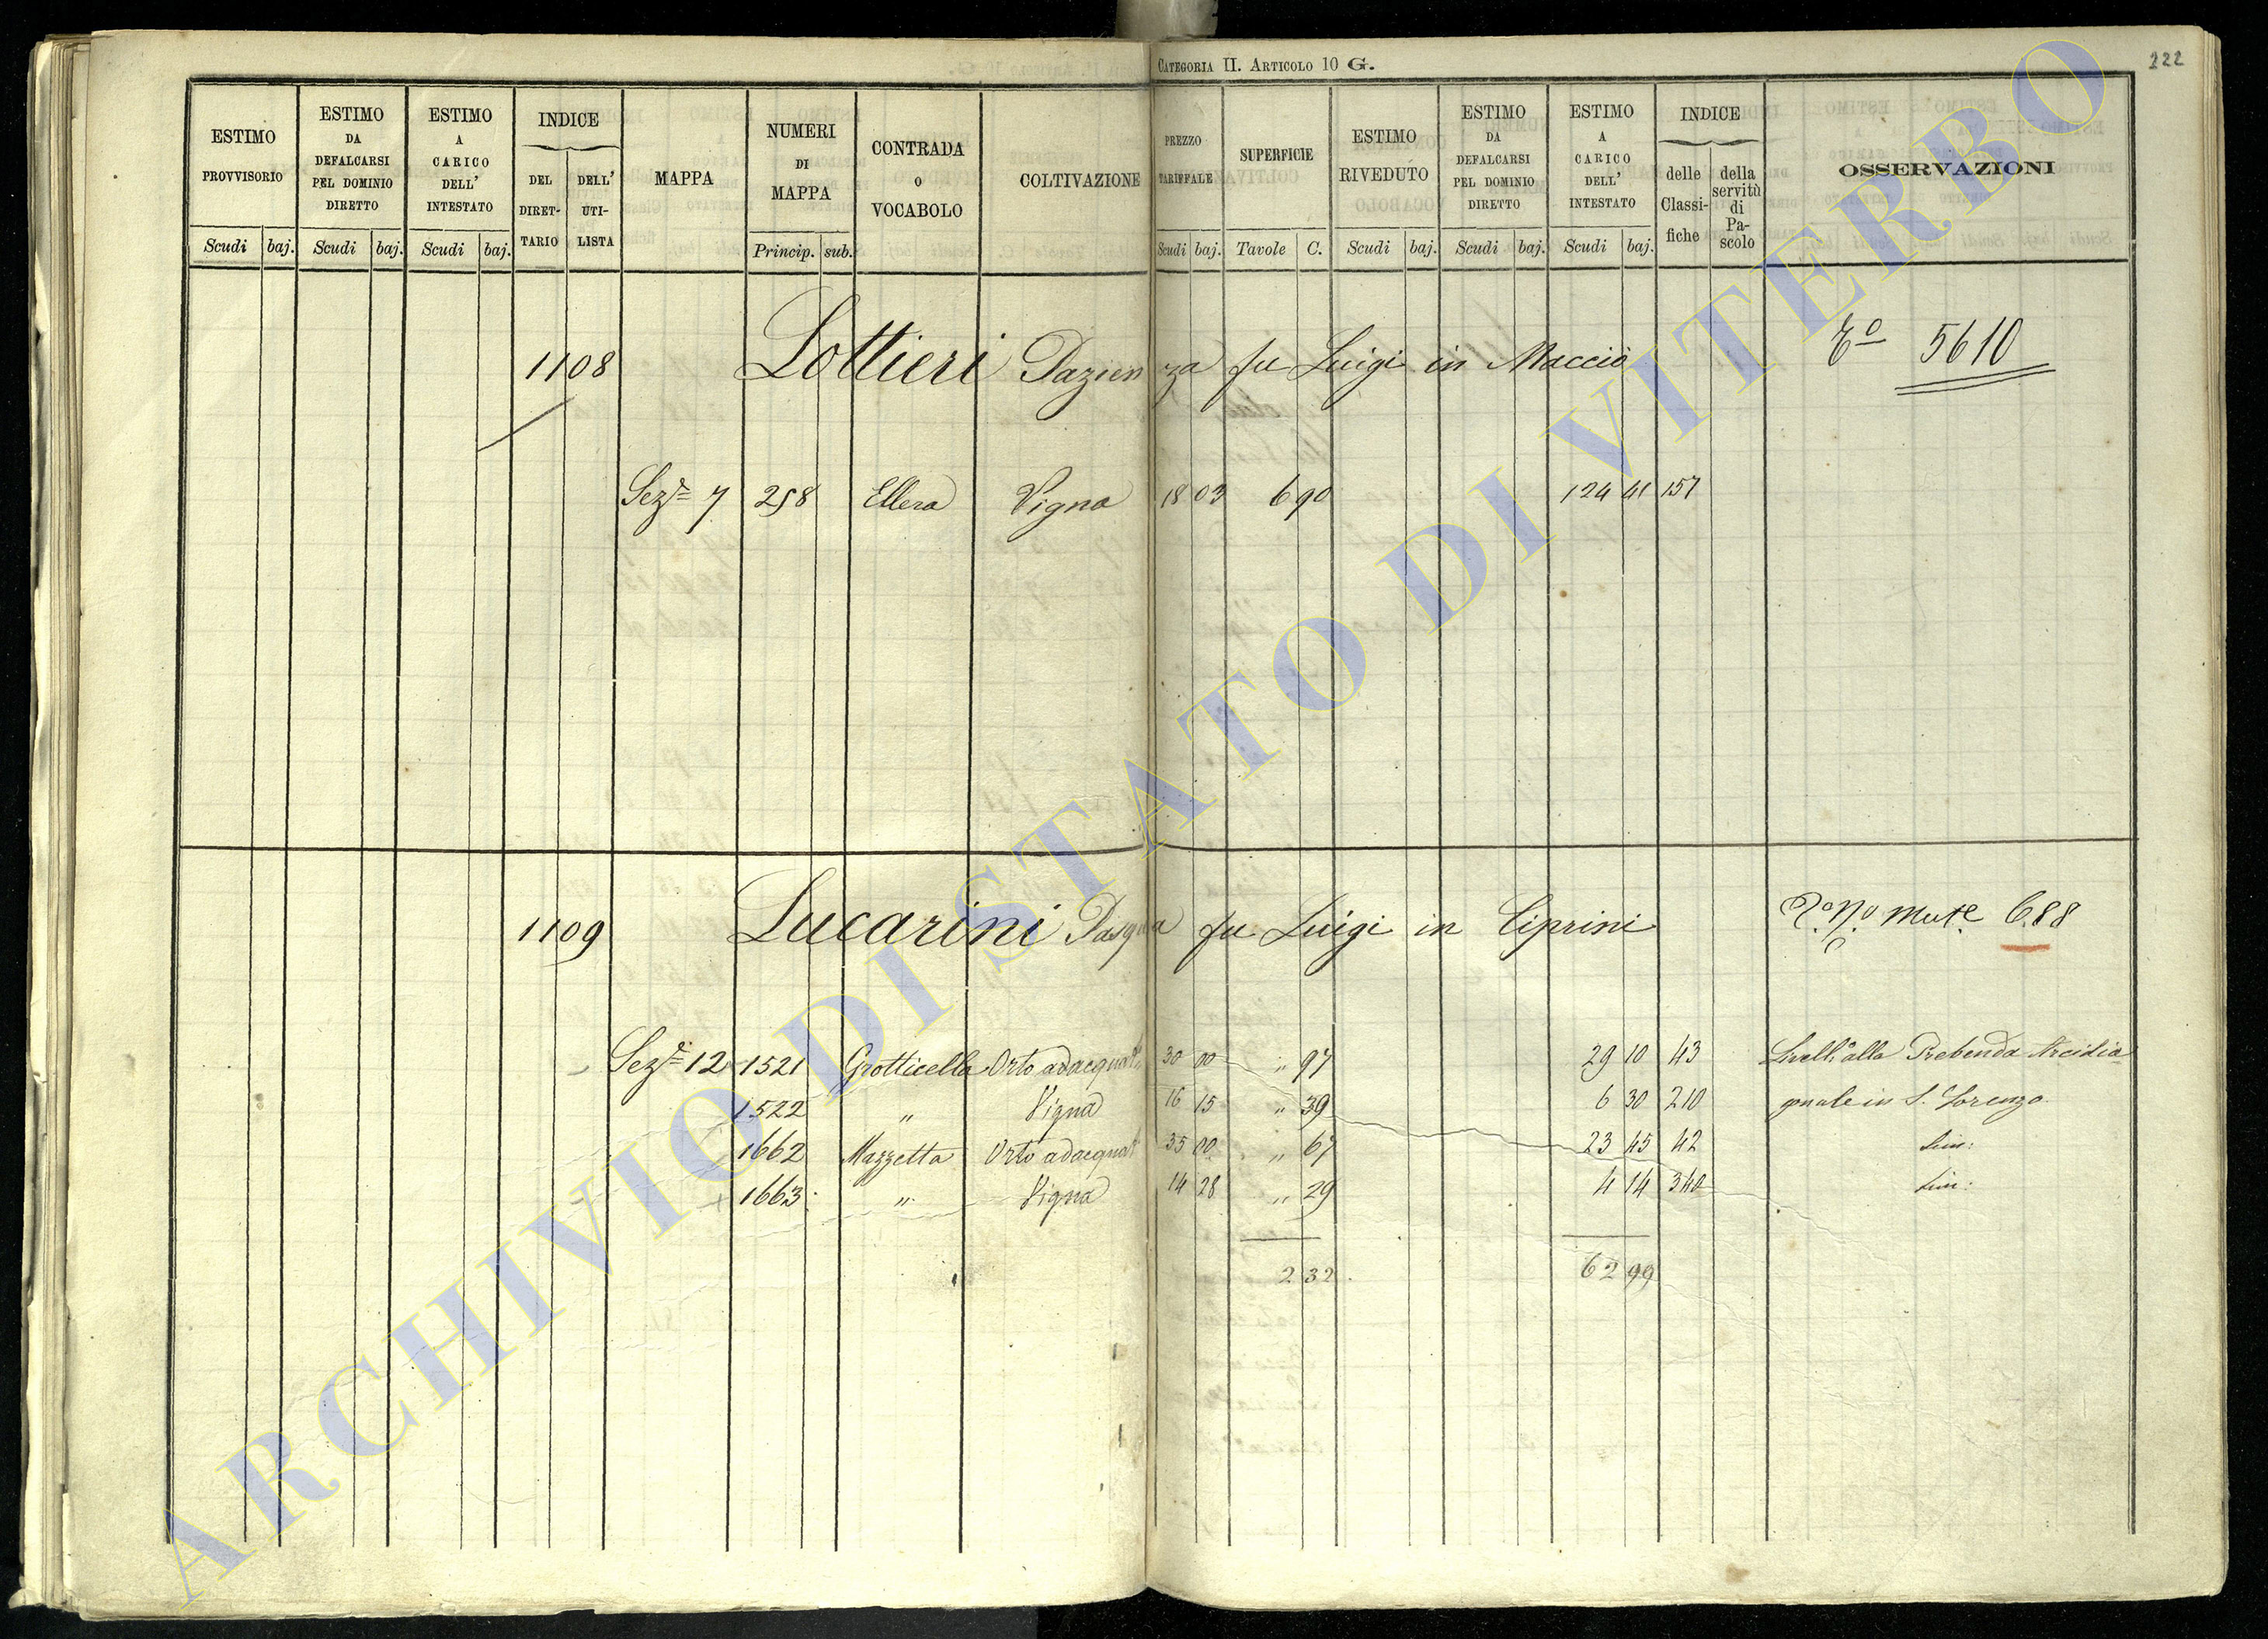 CATEGORIA II. ARTICOLO 10 G.
222
ESTIMO PROVVISORIO Scudi baj.
ESTIMO DA DEFALCARSI PEL DOMINIO DIRETTO Scudi baj.
ESTIMO A CARICO DELL' INTESTATO Scudi baj.
INDICE DEL DIRET-TARIO DELL' UTI-LISTA
MAPPA
NUMERI DI MAPPA Princip. sub.
CONTRADA O VOCABOLO
COLTIVAZIONE
PREZZO TARIFFALE Scudi baj.
SUPERFICIE Tavole C.
ESTIMO RIVEDUTO Scudi baj.
ESTIMO DA DEFALCARSI PEL DOMINIO DIRETTO Scudi baj.
ESTIMO A CARICO DELL' INTESTATO Scudi baj.
INDICE delle Classi-fiche della servitù di Pa-scolo
OSSERVAZIONI
1108 Lottieri Pazienza fu Luigi in Macciò 5610
Sez.e 7 258 Ellera Vigna 18 03 6 90 124 41 157
1109 Lucarini Pasqua fu Luigi in Ciprini Mut.e 688
Sez.e 12 1521 Grotticella Orto adacquat. 30 00 „ 97 29 10 43 Livell.o alla Prebenda Arcidia
1522 „ Vigna 16 15 „ 39 6 30 210 gonale in S. Lorenzo
1662 Mazzetta Orto adacquat. 35 00 „ 67 23 45 42
1663 „ Vigna 14 28 „ 29 4 14 340
2 32 62 99
ARCHIVIO DI STATO DI VITERBO